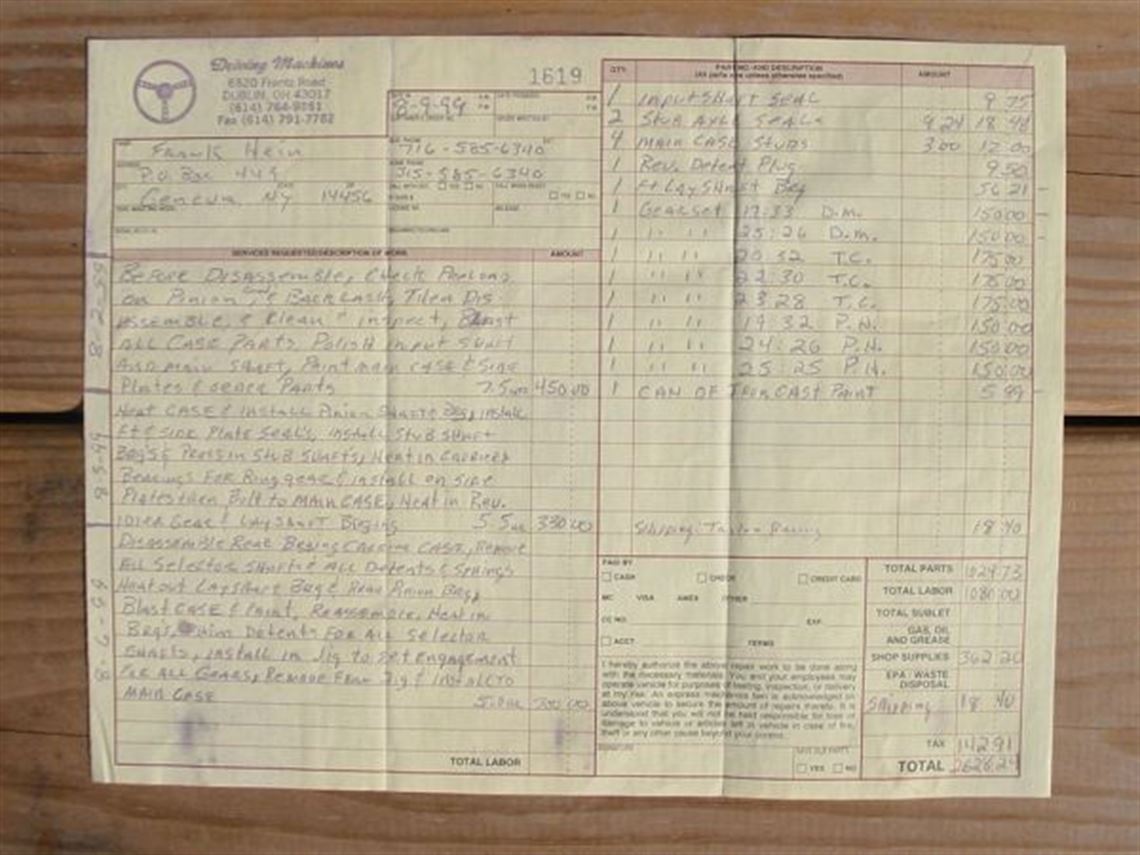 Driving Machines
6520 Frantz Road
DUBLIN, OH 43017
(614) 764-9861
Fax (614) 791-7762
1619
8-9-99
Frank Hein
716-585-6340
P.O. Box 449
315-585-6340
Geneva, NY 14456
SERVICES REQUESTED/DESCRIPTION OF WORK AMOUNT
Before Disassemble, Check
on Pinion Backlash, Then Dis
assemble, & Clean & inspect, Blast
ALL CASE Parts Polish input Shaft
And main Shaft, Paint main case & Side
Plates & Parts 7.5 450.00
Heat CASE & install Pinion Shaft & Brg, install
Side Plate Seals, install Stub Shaft
Press in Stub Shafts, Heat in Carrier
Bearings For Ring gear & install on Side
Plates then Bolt to MAIN CASE, Heat in Rev.
IDLER Gear & LAYSHAFT 5.5 330.00
Disassemble Rear CASE, Remove
ALL Selector Shafts & ALL Detents & Springs
Heat out Layshaft Brg & Pinion Brg,
Blast CASE & Paint, Reassemble, Heat in
Brgs, Shim Detents For ALL Selector
Shafts, install in Jig to Set Engagement
For ALL Gears, Remove From Jig & Install to
MAIN CASE 300.00
8-2-99
8-5-99
TOTAL LABOR
QTY. PART NO. AND DESCRIPTION AMOUNT
(All parts are unless otherwise specified)
1 INPUT SHAFT SEAL 9 75
2 STUB AXLE SEALS 9 24 18 48
4 MAIN CASE STUDS 3 00 12 00
1 Rev. Detent Plug 9 50
1 Ft Layshaft Brg 56 21
1 Gearset 17:33 D.M. 150 00
1 " " 25:26 D.M. 150 00
1 " " 20:32 T.C. 175 00
1 " " 22:30 T.C. 175 00
1 " " 23:28 T.C. 175 00
1 " " 19:32 P.N. 150 00
1 " " 24:26 P.N. 150 00
1 " " 25:25 P.N. 150 00
1 CAN OF CAST PAINT 5 99
Shipping 18 40
PAID BY
CASH CREDIT CARD
MC VISA AMEX OTHER
CC NO. EXP.
ACCT. TERMS
I hereby authorize the above repair work to be done along
with the necessary materials. You and your employees may
operate vehicle for purposes of testing, inspection, or delivery
at my risk. An express mechanics lien is acknowledged on
above vehicle to secure the amount of repairs thereto. It is
understood that you will not be held responsible for loss or
damage to vehicle or articles left in vehicle in case of fire,
theft or any other cause beyond your control.
YES NO
TOTAL PARTS 1024 73
TOTAL LABOR 1080 00
TOTAL SUBLET
GAS, OIL
AND GREASE
SHOP SUPPLIES 362 20
EPA / WASTE
DISPOSAL
Shipping 18 40
TAX 142 91
TOTAL 2628 24